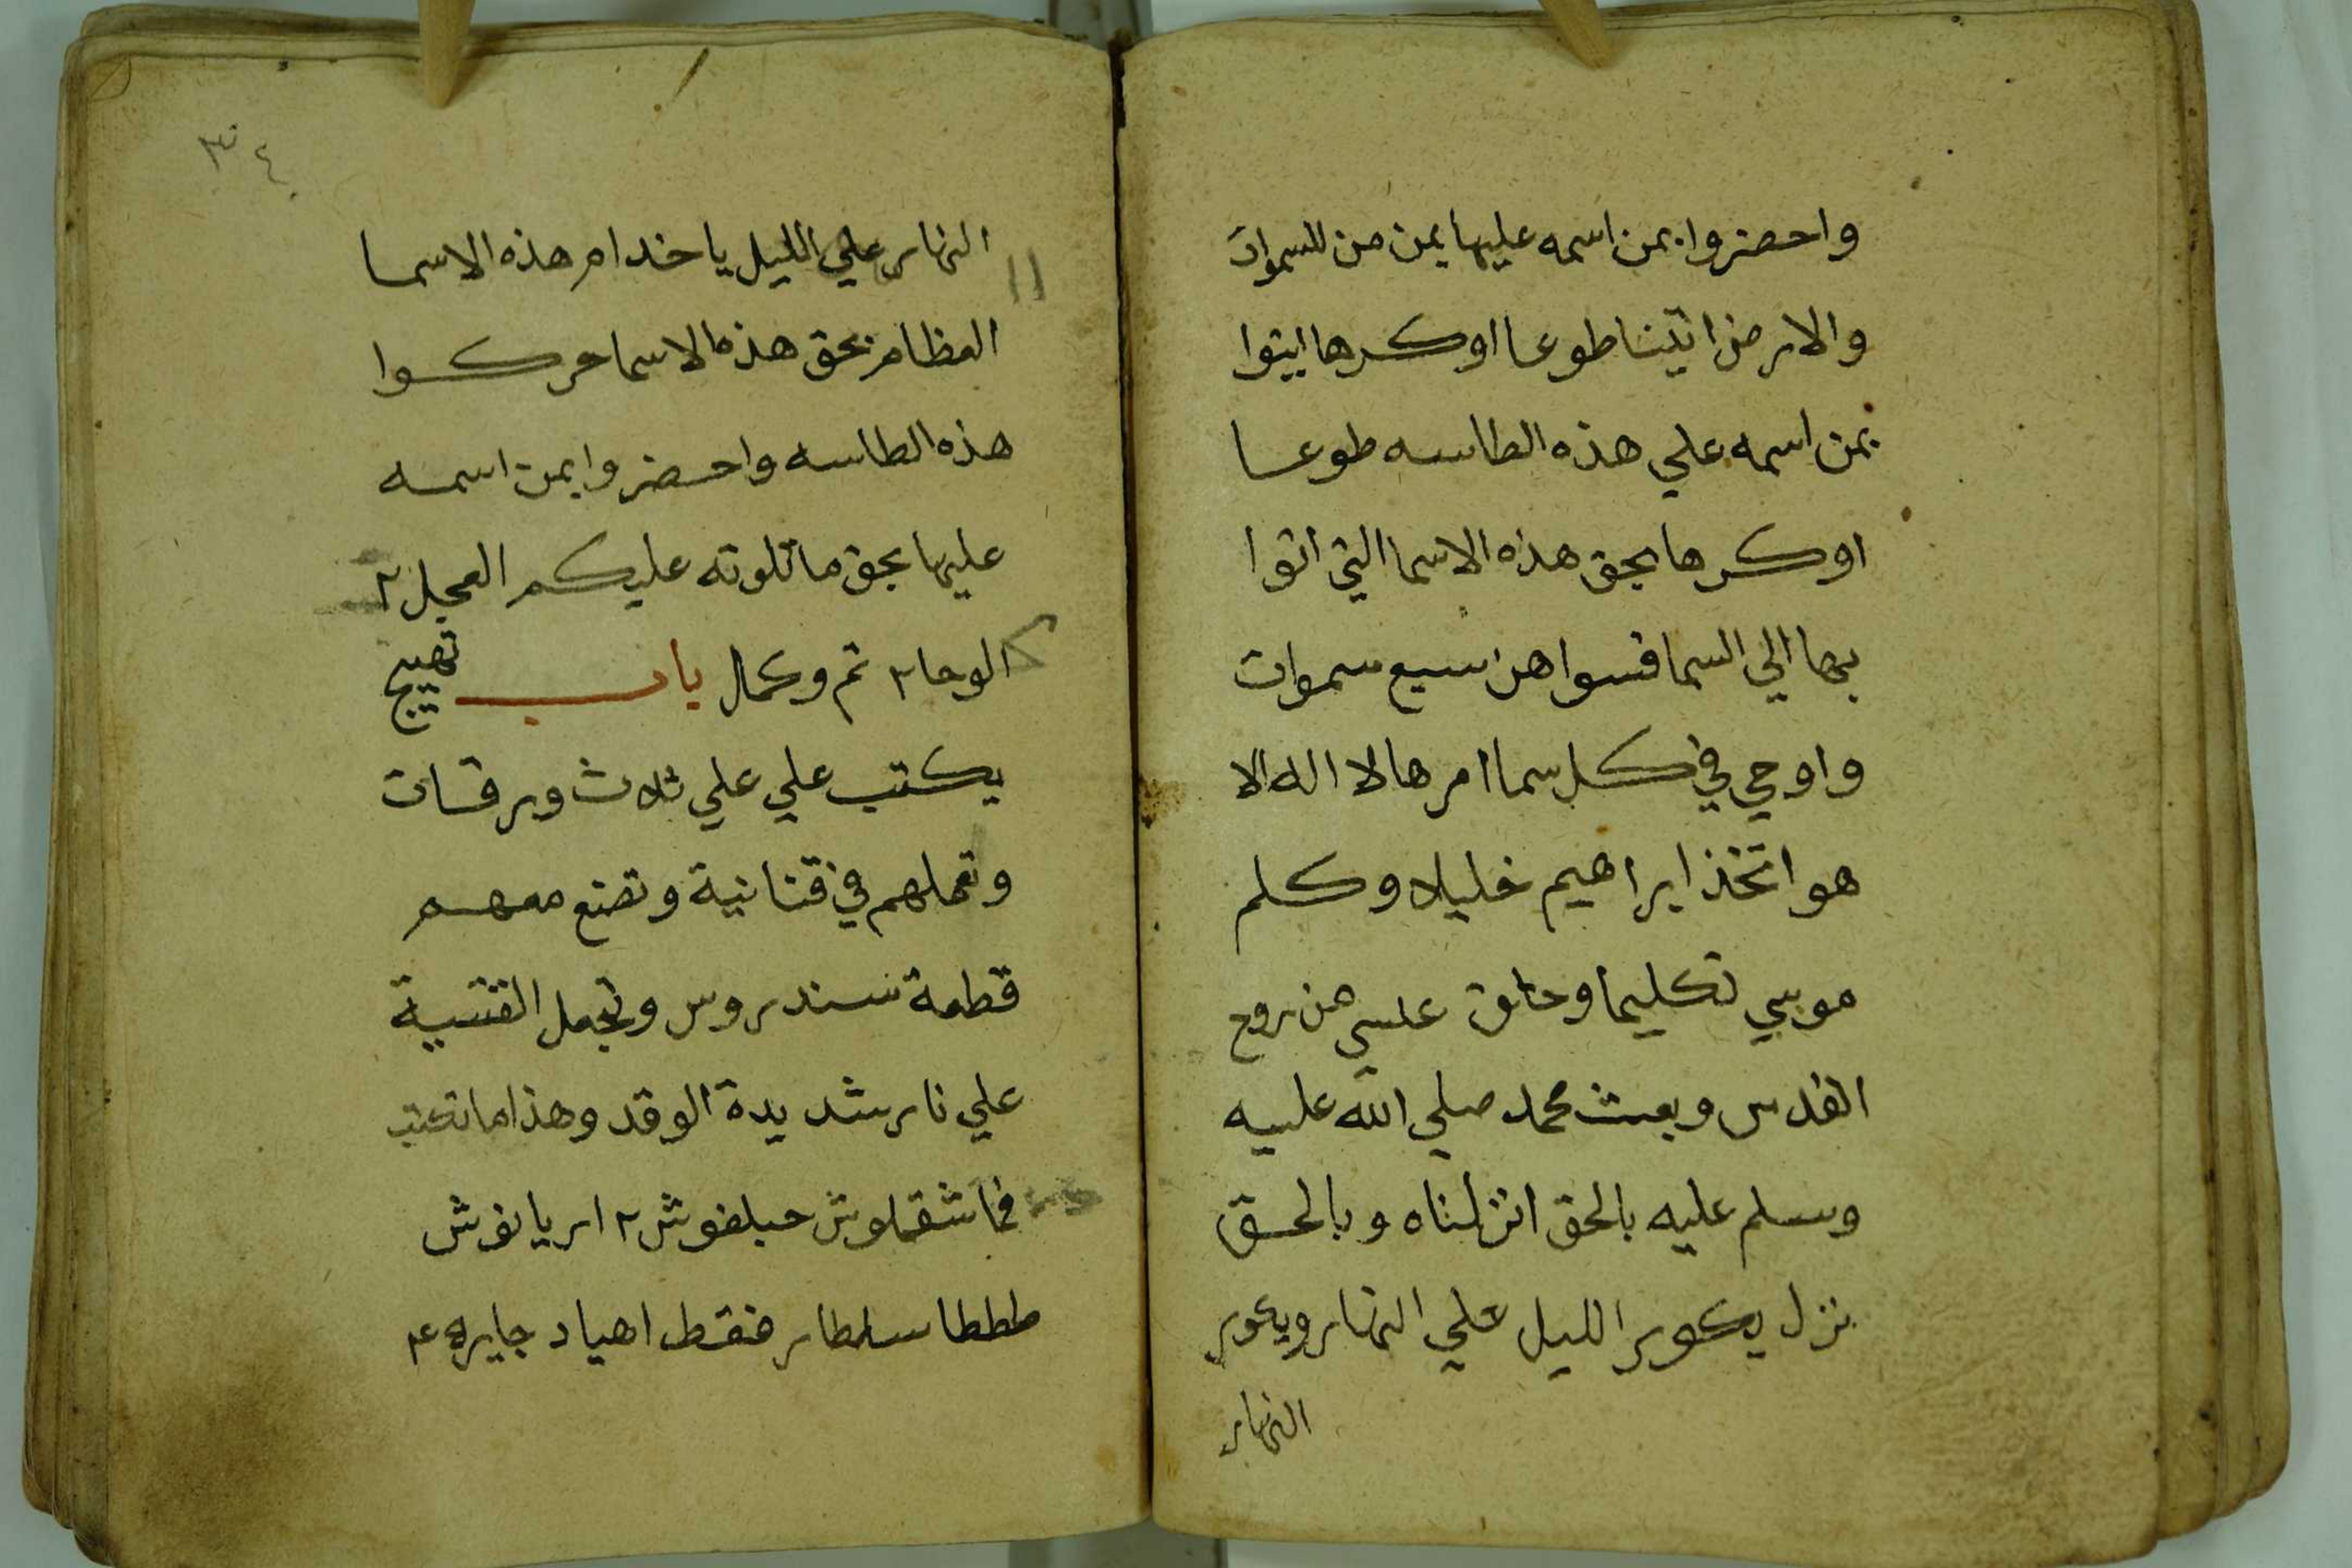 واحضروا بمن اسمه عليها يمن من للسموات
والارض اتينا طوعا اوكرها ايتوا
بمن اسمه علي هذه الطاسه طوعا
اوكرها بحق هذه الاسما التي اتوا
بها الي السما فسواهن سبع سموات
واوحي في كل سما امرها لا اله الا
هو اتخذ ابراهيم خليلا وكلم
موسي تكليما وخلق عيسي من روح
القدس وبعث محمد صلي الله عليه
وسلم عليه بالحق انزلناه وبالحق
نزل يكور الليل علي النهار ويكور
النهار
٣٤
النهار علي الليل يا خدام هذه الاسما
العظام بحق هذه الاسما حركوا
هذه الطاسه واحضروا بمن اسمه
عليها بحق ما تلوته عليكم العجل ٢
الوحا ٢ تم وكمل باب تهييج
يكتب علي علي ثلاث ورقات
وتعملهم في قنانية وتضع معهم
قطعة سندروس وتجعل القنينة
علي نار شديدة الوقد وهذا ما تكتب
شقملوش حبلغوش ٢ اريانوش
طططا سلطار فقط اهياد جايره ٢ع